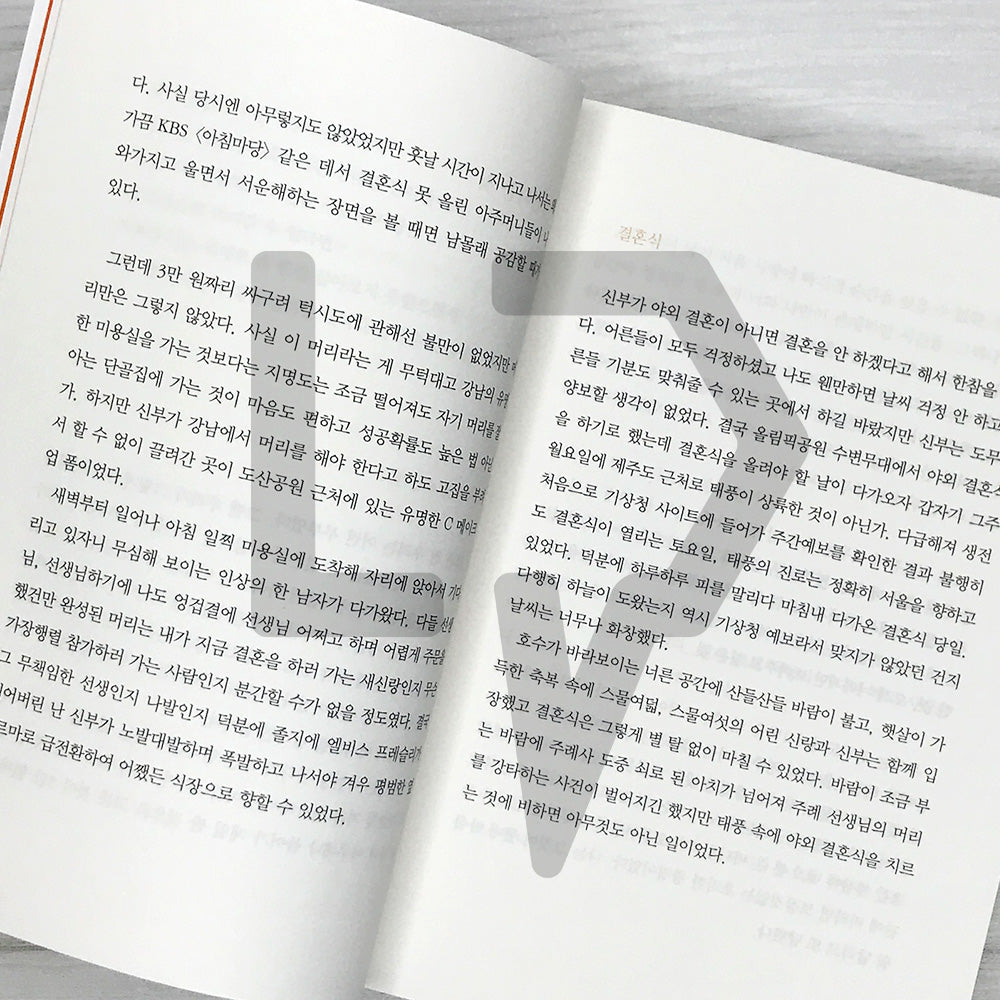 다. 사실 당시엔 아무렇지도 않았었지만 훗날 시간이 지나고 나서는
가끔 KBS 〈아침마당〉 같은 데서 결혼식 못 올린 아주머니들이 나
와가지고 울면서 서운해하는 장면을 볼 때면 남몰래 공감할 때가
있다.
그런데 3만 원짜리 싸구려 턱시도에 관해선 불만이 없었지만 머
리만은 그렇지 않았다. 사실 이 머리라는 게 무턱대고 강남의 유명
한 미용실을 가는 것보다는 지명도는 조금 떨어져도 자기 머리를 잘
아는 단골집에 가는 것이 마음도 편하고 성공확률도 높은 법 아닌
가. 하지만 신부가 강남에서 머리를 해야 한다고 하도 고집을 부려
서 할 수 없이 끌려간 곳이 도산공원 근처에 있는 유명한 C 메이크
업 폼이었다.
새벽부터 일어나 아침 일찍 미용실에 도착해 자리에 앉아서 기다
리고 있자니 무심해 보이는 인상의 한 남자가 다가왔다. 다들 선생
님, 선생님하기에 나도 엉겁결에 선생님 어쩌고 하며 어렵게 주문을
했건만 완성된 머리는 내가 지금 결혼을 하러 가는 새신랑인지 무슨
가장행렬 참가하러 가는 사람인지 분간할 수가 없을 정도였다. 결국
그 무책임한 선생인지 나발인지 덕분에 졸지에 엘비스 프레슬리가
되어버린 난 신부가 노발대발하며 폭발하고 나서야 겨우 평범한
르마로 급전환하여 어쨌든 식장으로 향할 수 있었다.
결혼식
신부가 야외 결혼이 아니면 결혼을 안 하겠다고 해서 한참을
다. 어른들이 모두 걱정하셨고 나도 웬만하면 날씨 걱정 안 하고
른들 기분도 맞춰줄 수 있는 곳에서 하길 바랐지만 신부는 도무
양보할 생각이 없었다. 결국 올림픽공원 수변무대에서 야외 결혼식
을 하기로 했는데 결혼식을 올려야 할 날이 다가오자 갑자기 그주
월요일에 제주도 근처로 태풍이 상륙한 것이 아닌가. 다급해져 생전
처음으로 기상청 사이트에 들어가 주간예보를 확인한 결과 불행히
도 결혼식이 열리는 토요일, 태풍의 진로는 정확히 서울을 향하고
있었다. 덕분에 하루하루 피를 말리다 마침내 다가온 결혼식 당일.
다행히 하늘이 도왔는지 역시 기상청 예보라서 맞지가 않았던 건지
날씨는 너무나 화창했다.
호수가 바라보이는 너른 공간에 산들산들 바람이 불고, 햇살이 가
득한 축복 속에 스물여덟, 스물여섯의 어린 신랑과 신부는 함께 입
장했고 결혼식은 그렇게 별 탈 없이 마칠 수 있었다. 바람이 조금 부
는 바람에 주례사 도중 쇠로 된 아치가 넘어져 주례 선생님의 머리
를 강타하는 사건이 벌어지긴 했지만 태풍 속에 야외 결혼식을 치르
는 것에 비하면 아무것도 아닌 일이었다.